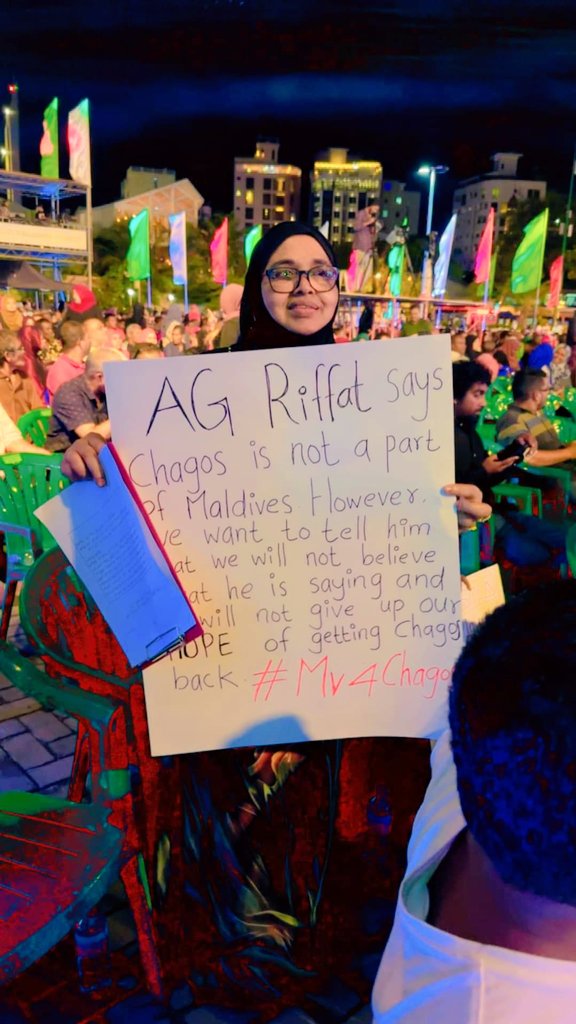 AG Riffat says
Chagos is not a part
of Maldives. However.
we want to tell him
at we will not believe
at he is saying and
will not give up our
HOPE of getting Chagos
back. #Mv4Chagos